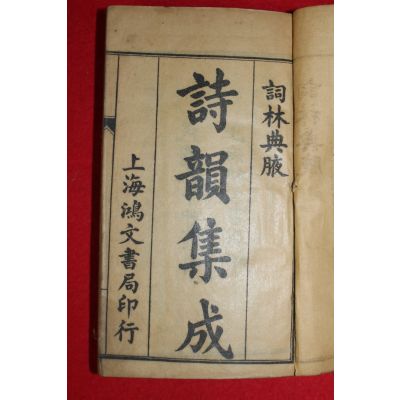 詞林典腋
詩韻集成
上海鴻文書局印行